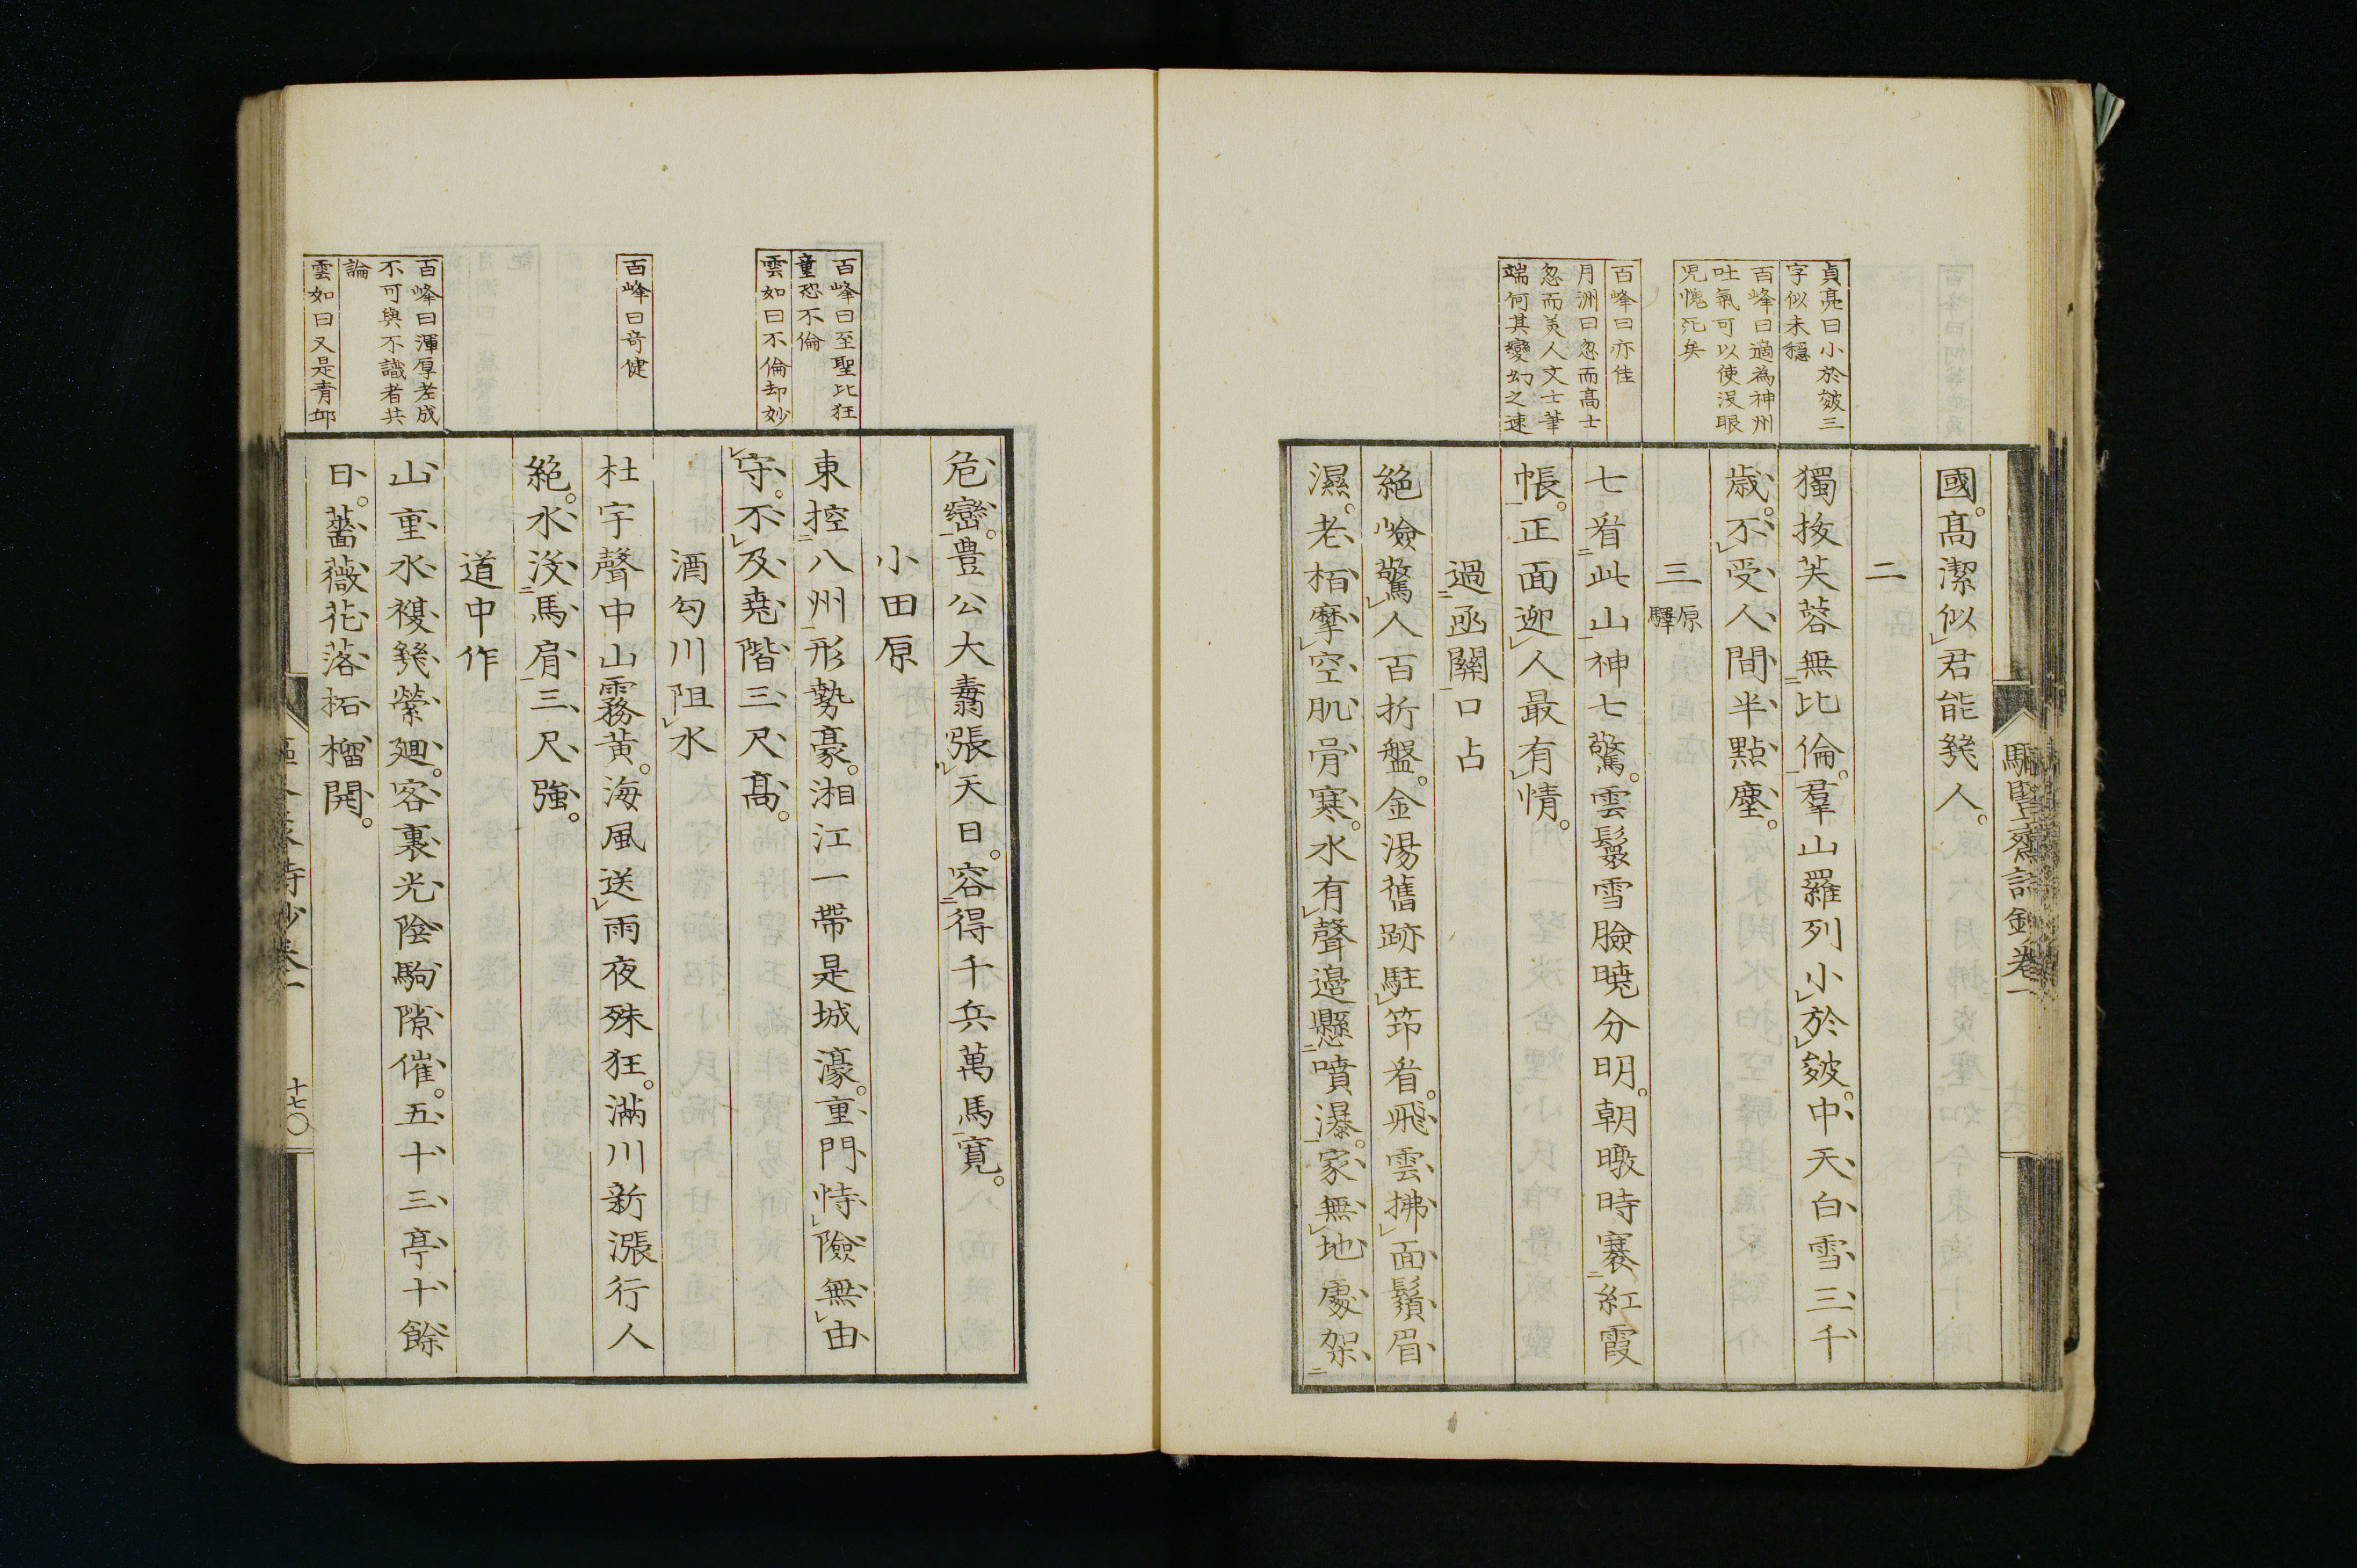 貞亮曰小於皴三
字似未穩
百峰曰適為神州
吐氣可以使没眼
児愧死矣
百峰曰亦佳
月洲曰忽而高士
忽而美人文士筆
端何其變幻之速
國。高潔似㆑君能發人。
二
獨抜芙蓉無㆓比倫㆒。羣山羅列小㆑於㆑皴。中天白雪三千
歳。不㆑受人間半點塵。
三 原驛
七看㆓此山㆒神七驚。雲鬟雪臉曉分明。朝暾時褰㆓紅霞
帳㆒。正面迎㆑人最有㆑情。
過㆓函關㆒口占
絶嶮驚㆑人百折盤。金湯舊跡駐㆑筇看。飛雲拂㆑面鬚眉
濕。老栢摩㆑空肌骨寒。水有㆑聲邉懸㆓噴瀑㆒。家無㆑地處架㆓
驅豎齋詩鈔卷一
百峰曰至聖比狂
童恐不倫
雲如曰不倫却妙
百峰曰奇健
百峰曰渾厚老成
不可與不識者共
論
雲如曰又是青邱
危巒㆒。豊公大纛張㆑天日。容㆓得千兵萬馬㆒寛。
小田原
東控㆓八州㆒形勢豪。湘江一帶是城濠。重門恃㆑險無㆑由
守㆑。不㆑及堯階三尺高。
酒匂川阻㆑水
杜宇聲中山霧黄。海風送㆑雨夜殊狂。滿川新漲行人
絶。水没㆓馬肩㆒三尺強。
道中作
山重水複幾縈廻。客裏光陰駒隙催。五十三亭十餘
日。薔薇花落柘榴開。
十七〇